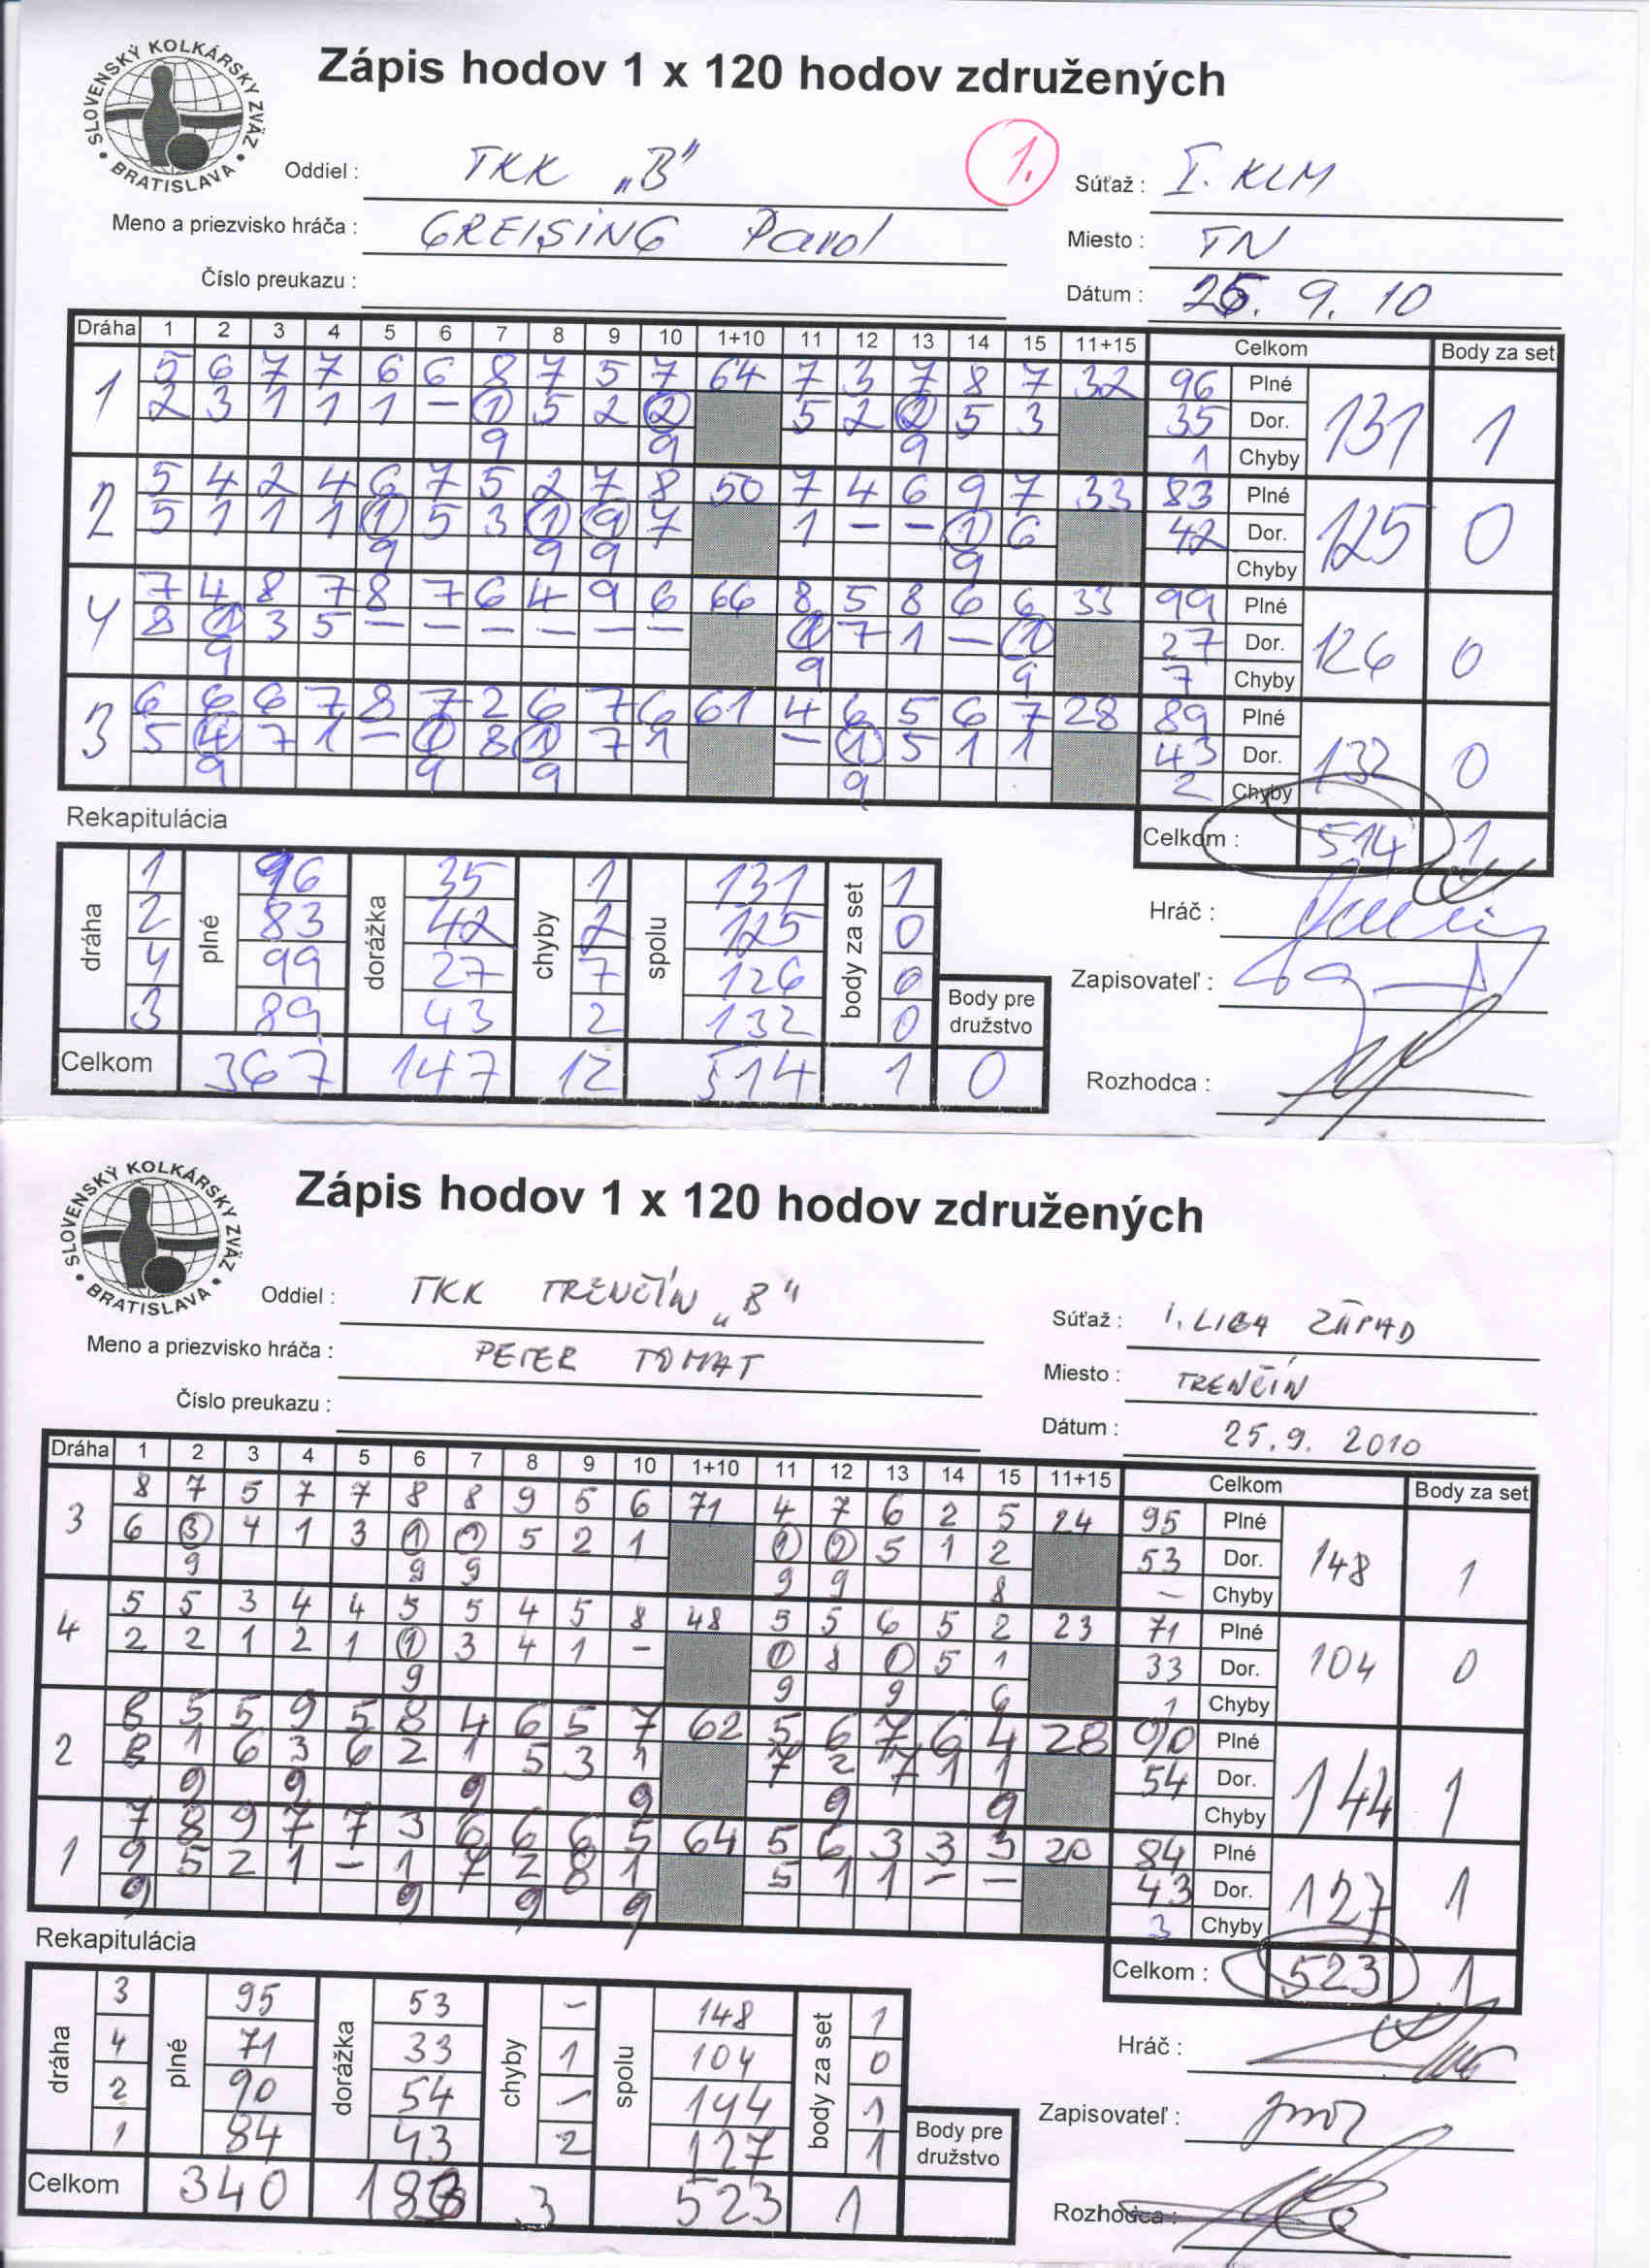 SLOVENSKÝ KOLKÁRSKY ZVÄZ • BRATISLAVA •
Zápis hodov 1 x 120 hodov združených
Oddiel : TKK „B" 1. Súťaž : I. KLM
Meno a priezvisko hráča : GREISING Pavol Miesto : TN
Číslo preukazu : Dátum : 25. 9. 10
Dráha 1 2 3 4 5 6 7 8 9 10 1+10 11 12 13 14 15 11+15 Celkom Body za set
1 5 6 7 7 6 6 8 7 5 7 64 7 3 7 8 7 32 96 Plné 131 1
2 3 1 1 1 – 1 5 2 2 5 2 2 5 3 35 Dor.
9 9 9 1 Chyby
2 5 4 2 4 6 7 5 2 7 8 50 7 4 6 9 7 33 83 Plné 125 0
5 1 1 1 1 5 3 1 9 7 1 – – 1 6 42 Dor.
9 9 9 9 Chyby
4 7 4 8 7 8 7 6 4 9 6 66 8 5 8 6 6 33 99 Plné 126 0
8 1 3 5 – – – – – – 1 7 1 – 1 27 Dor.
9 9 9 7 Chyby
3 6 6 6 7 8 7 2 6 7 6 61 4 6 5 6 7 28 89 Plné 132 0
5 4 7 1 – 1 8 1 7 1 – 1 5 1 1 43 Dor.
9 9 9 9 2 Chyby
Rekapitulácia Celkom : 514 1
dráha 1 plné 96 dorážka 35 chyby 1 spolu 131 body za set 1
2 83 42 2 125 0 Hráč :
4 99 27 7 126 0 Zapisovateľ :
3 89 43 2 132 0 Body pre družstvo
Celkom 367 147 12 514 1 0 Rozhodca :
SLOVENSKÝ KOLKÁRSKY ZVÄZ • BRATISLAVA •
Zápis hodov 1 x 120 hodov združených
Oddiel : TKK TRENČÍN „B" Súťaž : 1. LIGA ZÁPAD
Meno a priezvisko hráča : PETER TOMAT Miesto : TRENČÍN
Číslo preukazu : Dátum : 25.9. 2010
Dráha 1 2 3 4 5 6 7 8 9 10 1+10 11 12 13 14 15 11+15 Celkom Body za set
3 8 7 5 7 7 8 8 9 5 6 71 4 7 6 2 5 24 95 Plné 148 1
6 3 4 1 3 1 1 5 2 1 1 2 5 1 2 53 Dor.
9 9 9 9 9 8 – Chyby
4 5 5 3 4 4 5 5 4 5 8 48 5 5 6 5 2 23 71 Plné 104 0
2 2 1 2 1 1 3 4 1 – 1 8 1 5 1 33 Dor.
9 9 9 6 1 Chyby
2 8 5 5 9 5 8 4 6 5 7 62 5 6 7 6 4 28 90 Plné 144 1
8 1 6 3 6 2 1 5 3 1 7 2 7 1 1 54 Dor.
9 9 9 9 9 9 Chyby
1 7 8 9 7 7 3 6 6 6 5 64 5 6 3 3 3 20 84 Plné 127 1
9 5 2 1 – 1 7 2 8 1 5 1 1 – – 43 Dor.
9 9 9 9 3 Chyby
Rekapitulácia Celkom : 523 1
dráha 3 plné 95 dorážka 53 chyby – spolu 148 body za set 1
4 71 33 1 104 0 Hráč :
2 90 54 – 144 1 Zapisovateľ :
1 84 43 2 127 1 Body pre družstvo
Celkom 340 183 3 523 1 Rozhodca :